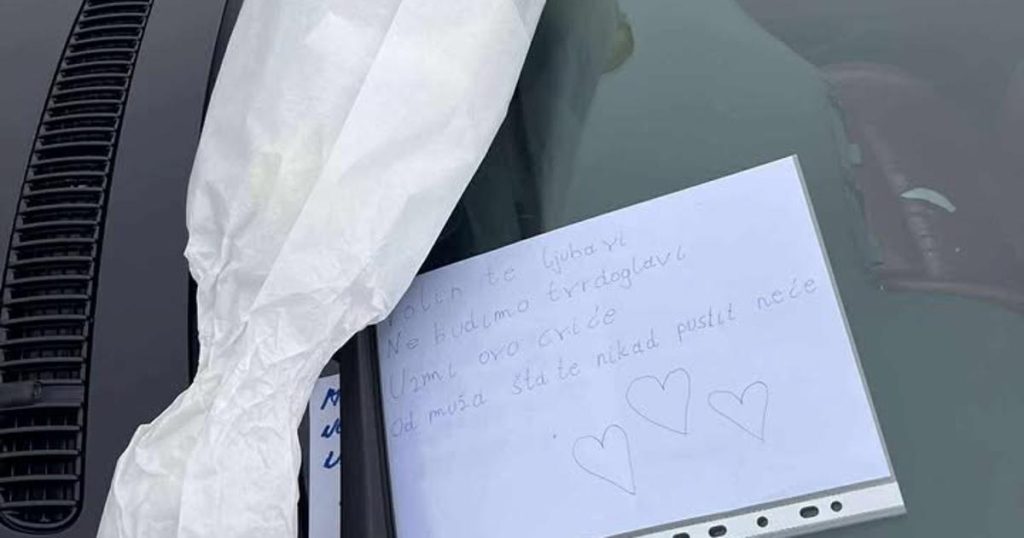 Volin te ljubavi
Ne budimo tvrdoglavi
Uzmi ovo cviće
Od muža šta te nikad pustit neće